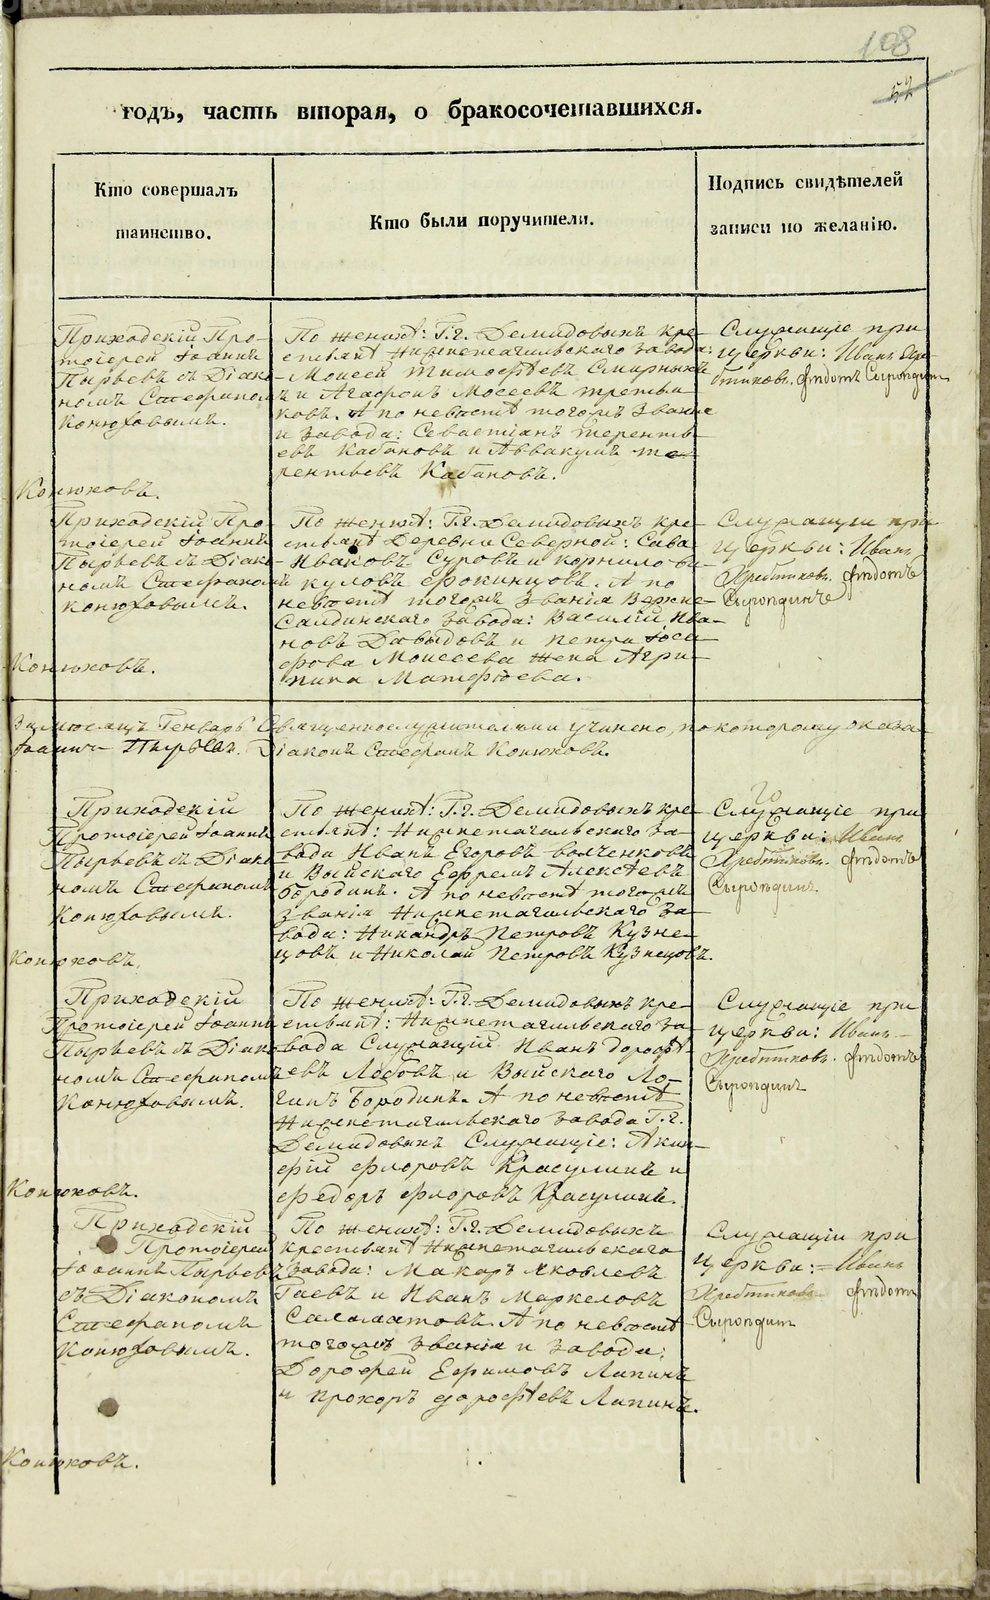 108
52
годъ, часть вторая, о бракосочетавшихся.
Кто совершалъ
таинство.
Кто были поручители.
Подпись свидѣтелей
записи по желанію.
Приходскій Про-
тоіерей Іоаннъ
Пырьевъ съ Діако-
номъ Стефаномъ
Конюховымъ.
Конюховъ.
По женихѣ: Г.г. Демидовыхъ кре-
стьянѣ Нижнетагильскаго завода:
Моисей Тимофѣевъ Смирныхъ
и Агафонъ Мосеевъ Третья-
ковъ. А по невѣстѣ тогожъ званія
и завода: Севастіанъ Теренть-
евъ Кабановъ и Аввакумъ Те-
рентьевъ Кабановъ.
Служащіе при
церкви: Иванъ
Сыропдинъ
Приходскій Про-
тоіерей Іоаннъ
Пырьевъ съ Діако-
номъ Стефаномъ
Конюховымъ.
Конюховъ.
По женихѣ: Г.г. Демидовыхъ кре-
стьянѣ Деревни Северной: Сава
Ивановъ Суровъ и Корнило Ви-
куловъ Фокинцовъ. А по
невѣстѣ тогожъ званія Верхне-
Салдинскаго завода: Василій Ива-
новъ Давыдовъ и Петра Іоси-
фова Моисеева жена Агри-
пина Матфіева.
Служащіи при
церкви: Иванъ
За мѣсяцъ Генварь Священнослужительми учинено, по которому оказа-
Іоаннъ Пырьевъ. Діаконъ Стефанъ Конюховъ.
Приходскій
Протоіерей Іоаннъ
Пырьевъ съ Діако-
номъ Стефаномъ
Конюховымъ.
Конюховъ.
По женихѣ: Г.г. Демидовыхъ кре-
стьянѣ: Нижнетагильскаго за-
вода Иванъ Егоровъ Волченковъ
и Выйскаго Ефремъ Алексѣевъ
Бородинъ. А по невѣстѣ тогожъ
званія Нижнетагильскаго за-
вода: Никандръ Петровъ Кузне-
цовъ и Николай Петровъ Кузнецовъ.
Служащіе при
церкви: Иванъ
Приходскій
Протоіерей Іоаннъ
Пырьевъ съ Діако-
номъ Стефаномъ
Конюховымъ.
Конюховъ.
По женихѣ: Г.г. Демидовыхъ кре-
стьянѣ: Нижнетагильскаго за-
вода Служащій Иванъ Дорофѣ-
евъ Лобовъ и Выйскаго Ло-
гинъ Бородинъ. А по невѣстѣ
Нижнетагильскаго завода Г.г.
Демидовыхъ Служащіе: Акин-
фій Флоровъ Красулинъ и
Федоръ Флоровъ Красулинъ.
Служащіе при
церкви: Иванъ
Приходскій
Протоіерей
Іоаннъ Пырьевъ
съ Діакономъ
Стефаномъ
Конюховымъ.
Конюховъ.
По женихѣ: Г.г. Демидовыхъ
крестьянѣ Нижнетагильскаго
завода: Макаръ Яковлевъ
Гаевъ и Иванъ Маркеловъ
Саламатовъ. А по невѣстѣ
тогожъ званія и завода:
Дорофей Ефимовъ Лапинъ
и Прохоръ Дорофѣевъ Лапинъ.
Служащіи при
церкви: Иванъ
METRIKI.GASO-URAL.RU